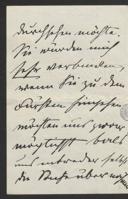 durchsehen möchte.
Sie würden mich
sehr verbinden,
wenn Sie zu dem
Fürsten hinsehen
möchten und zwar
möglichst bald
uns entweder selbst
die Sache über